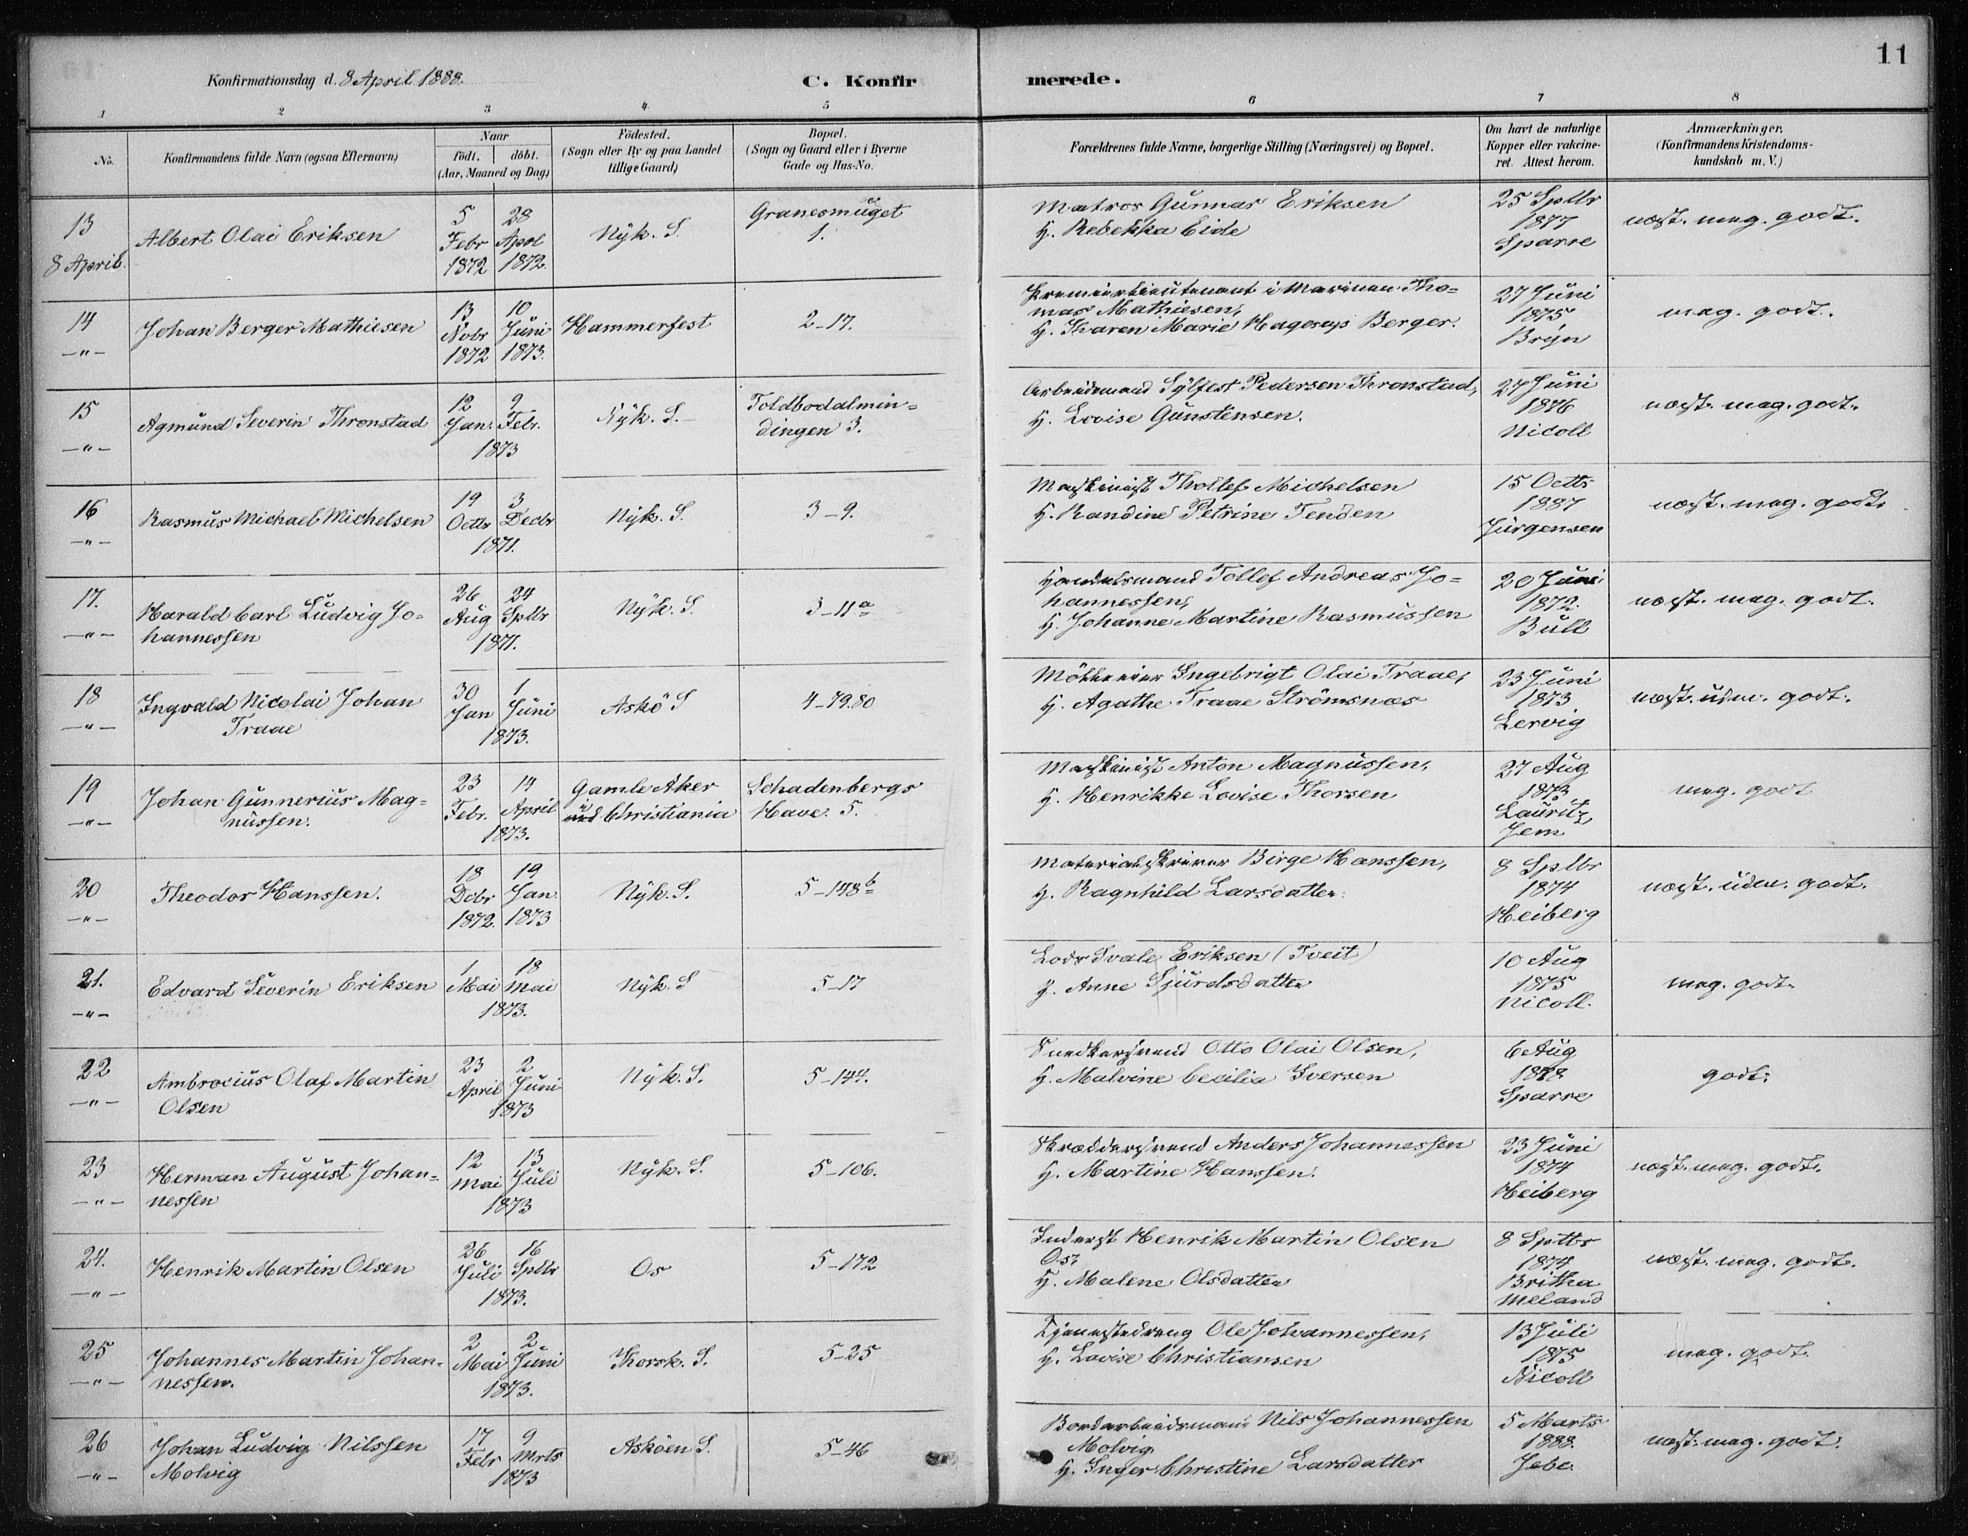 11
Konfirmationsdag d. 8 April 1888.
C. Konfirmerede.
1 2 3 4 5 6 7 8
No.
Konfirmandens fulde Navn (ogsaa Efternavn)
Naar
födt. döbt.
(Aar, Maaned og Dag)
Födested.
(Sogn eller By og paa Landet
tillige Gaard)
Bopæl.
(Sogn og Gaard eller i Byerne
Gade og Hus-No.
Forældrenes fulde Navne, borgerlige Stilling (Næringsvei) og Bopæl.
Om havt de naturlige
Kopper eller vakcine-
ret. Attest herom.
Anmærkninger,
(Konfirmandens Kristendoms-
kundskab m. V.)
13
8 April.
Albert Olai Eriksen
5 Febr 1872
28 Aprl 1872.
Nyk. S.
Granesmuget
1.
Matros Gunnar Eriksen
H. Rebekka Eide
25 Sptbr
1877
Sparre
næst. meg. godt.
14
—"—
Johan Berger Mathiesen
13 Novbr 1872
10 Juni 1873.
Hammerfest
2-17.
Premierlieutenant i Marinen Tho-
mas Mathiesen,
H. Karen Marie Berger.
27 Juni
1875
Bryn
meg. godt.
15
—"—
Agmund Severin Thronstad
12 Jan. 9 Febr.
1873
Nyk. S.
Toldbodalmin-
dingen 3.
Arbeidsmand Sylfest Pedersen Thronstad,
H. Lovise Gunstensen.
27 Juni
1876
Nicoll
næst. meg. godt.
16
—"—
Rasmus Michael Michelsen
19 Octbr 3 Decbr
1871.
Nyk. S.
3-9.
Maskinist Thollef Michelsen
H. Randine Petrine Tenden
15 Octbr
1887
Jürgensen
næst. meg. godt.
17.
—"—
Harald Carl Ludvig Jo-
hannessen
26 Aug 24 Sptbr
1871.
Nyk. S.
3-11a
Handelsmand Tollef Andreas Jo-
hannessen,
H. Johanne Martine Rasmussen
20 Juni
1872.
Bull
næst. meg. godt.
18
—"—
Ingvald Nicolai Johan
Traae
30 Jan 1 Juni
1873.
Askö S
4-79.80
Mölleeier Ingebrigt Olai Traae,
H. Agathe Traae Strömsnæs
23 Juni
1873
Lervig
næst. udm. godt.
19
—"—
Johan Gunnerius Mag-
nussen.
23 Febr. 14 April
1873.
Gamle Aker
i Christiania
Schadenbergs
Have 5.
Maskinist Anton Magnussen,
H. Henrikke Lovise Thorsen
27 Aug
1873
Lauritz
Jem
meg. godt
20
—"—
Theodor Hanssen.
18 Dcbr 1872.
19 Jan 1873
Nyk. S.
5-148b
Materialskriver Birge Hanssen,
H. Ragnhild Larsdatter.
8 Sptbr
1874
Heiberg
næst. udm. godt.
21.
—"—
Edvard Severin Eriksen
1 Mai 18 Mai
1873.
Nyk. S
5-17
Lods Svale Eriksen (Tveit)
H. Anne Sjurdsdatter
10 Aug
1875
Nicoll.
meg. godt.
22
—"—
Ambrocius Olaf Martin
Olsen
23 April 2 Juni
1873
Nyk. S.
5-144.
Snedkersvend Otto Olai Olsen,
H. Malvine Cecilia Iversen
6 Aug
1878
Sparre
godt.
23
—"—
Herman August Johan-
nessen
12 Mai 13 Juli
1873
Nyk. S.
5-106.
Skræddersvend Anders Johannessen
H. Martine Hanssen.
23 Juni
1874
Heiberg
næst. meg. godt.
24.
—"—
Henrik Martin Olsen
26 Juli 16 Sptbr
1873.
Os
5-172
Inderst Henrik Martin Olsen
Os,
H. Malene Olsdatter
8 Sptbr
1874
Britha
Meland
næst. meg. godt.
25
—"—
Johannes Martin Johan-
nessen.
2 Mai 2 Juni
1873.
Korsk. S.
5-25
Tjenestedreng Ole Johannessen,
H. Lovise Christiansen
13 Juli
1875
Nicoll
meg. godt.
26
—"—
Johan Ludvig Nilssen
Molvig
17 Febr 9 Mrts
1873
Asköen S.
5-46
Bordarbeidsmand Nils Johannessen
Molvig
H. Inger Christine Larsdatter
5 Marts
1888.
Jebe
næst. meg. godt.